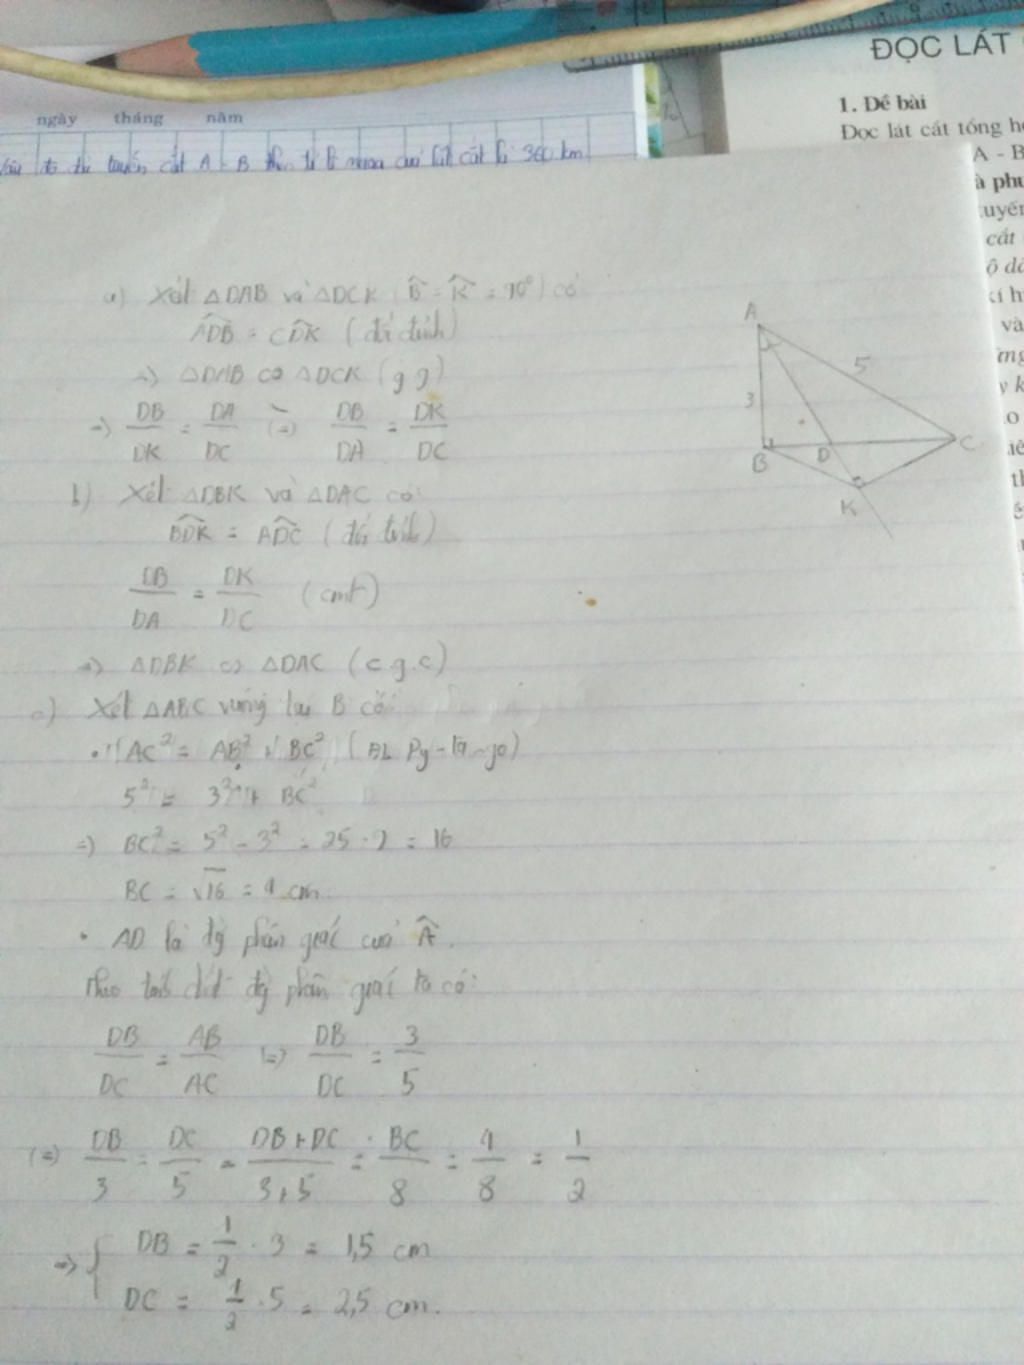 ĐỌC LÁT
1. Đề bài
Đọc lát cắt tổng hợ
A - B
à phư
tuyến
cắt
ộ dà
kí h
và
ừng
y k
ngày tháng năm
cắt A - B 360 km
a) Xét △DAB và △DCK (B̂ = K̂ = 90°) có
ADB̂ = CDK̂ (đối đỉnh)
=> △DAB ∽ △DCK (g g)
=> DB/DK = DA/DC (=) DB/DA = DK/DC
b) Xét △DBK và △DAC có:
BDK̂ = ADĈ (đối đỉnh)
DB/DA = DK/DC (cmt)
=> △DBK ∽ △DAC (c.g.c)
c) Xét △ABC vuông tại B có:
• AC² = AB² + BC² (ĐL Py-ta-go)
5² = 3² + BC²
=> BC² = 5² - 3² = 25 - 9 = 16
BC = √16 = 4 cm.
• AD là đg phân giác của Â.
Theo tính chất đg phân giác ta có:
DB/DC = AB/AC (=) DB/DC = 3/5
(=) DB/3 = DC/5 = DB+DC/3+5 = BC/8 = 4/8 = 1/2
=> { DB = 1/2 . 3 = 1,5 cm
DC = 1/2 . 5 = 2,5 cm.
A
5
3
B
D
C
K